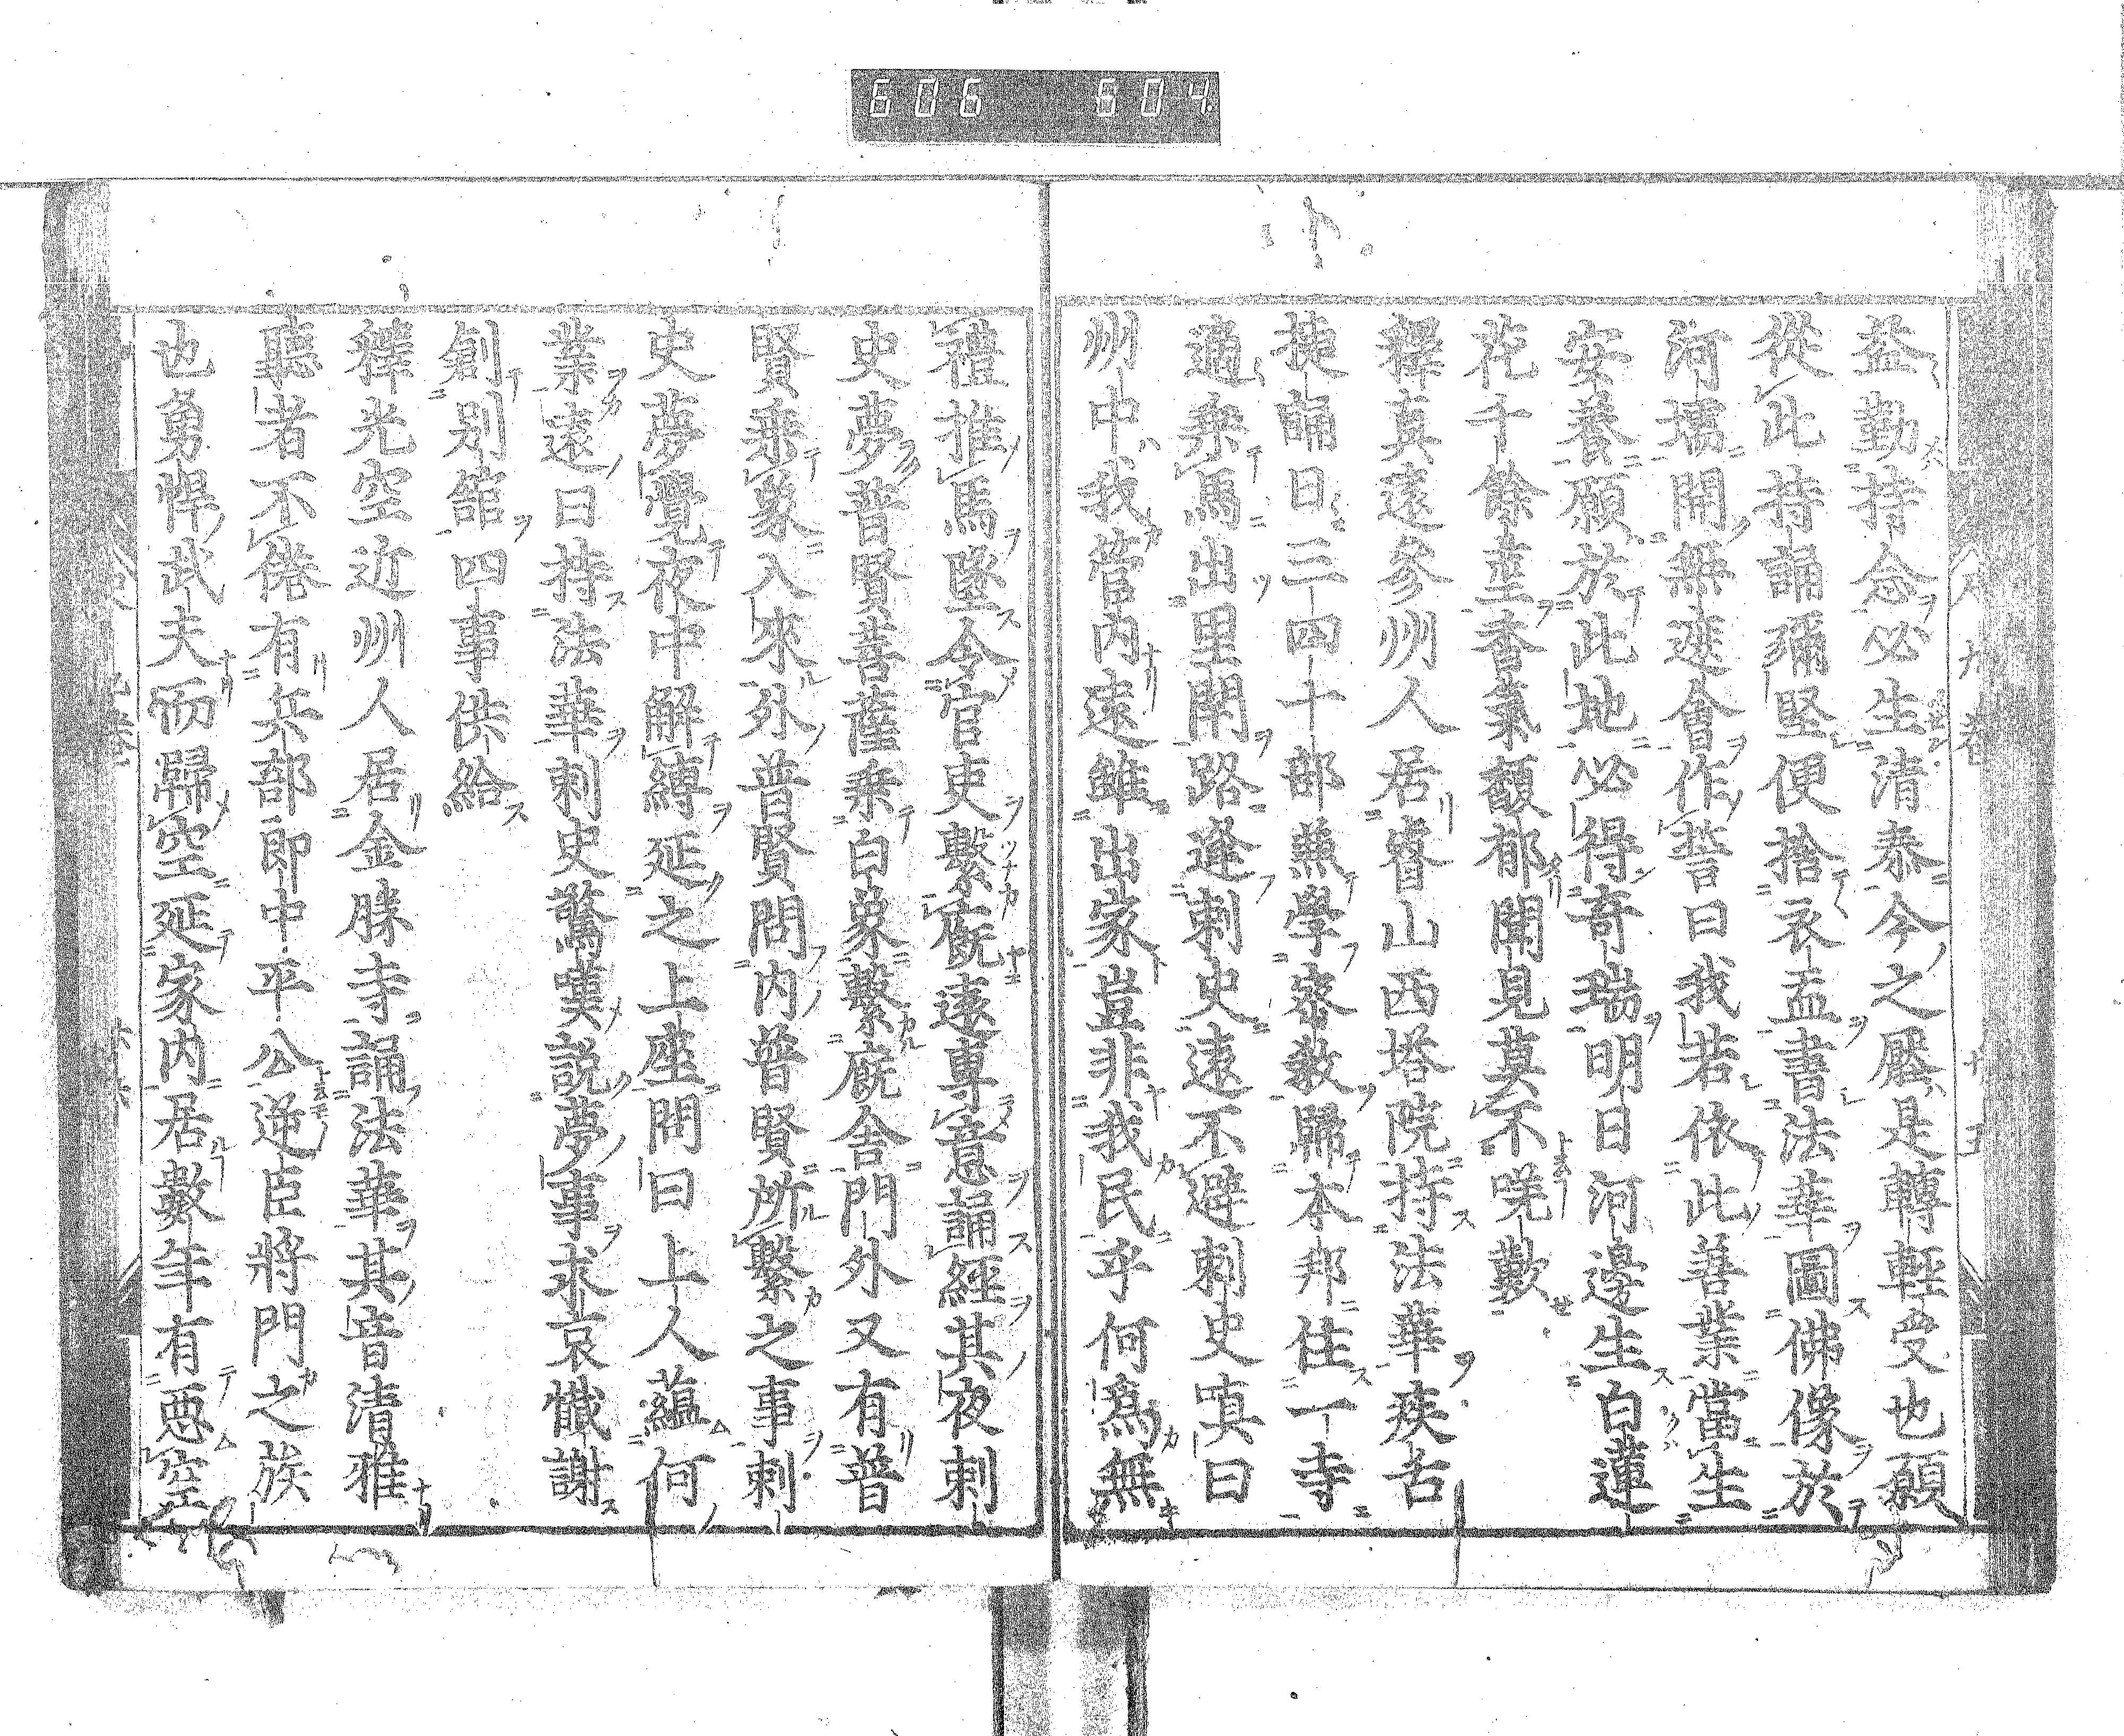 606 604
益勤持念必生清泰今之壓是轉輕受也願
從此持誦彌堅便捨衣盂書法華圖佛像於
河壖開無遮會作誓曰我若依此善業當生
安養願於此地必得奇瑞明日河邊生白蓮
花千餘莖香氣馥郁聞見莫不嗟歎
釋真遠參州人居睿山西塔院持法華疾舌
捷誦日三四十部兼學密教歸本邦住一寺
適乘馬出里閈路逢刺史遠不避刺史嗔曰
州中我管内遠雖出家豈非我民乎何爲無
禮推馬墜令官吏繫厩遠專意誦經其夜刺
史夢普賢菩薩乘白象繫廐舍門外又有普
賢乘象入來外普賢問内普賢所繫之事刺
史夢覺夜中解縛延之上座問曰上人蘊何
業遠曰持法華刺史驚嘆説夢事求哀懺謝
創別舘四事供給
釋光空近州人居金勝寺誦法華其音清雅
聽者不倦有兵部郎中平公逆臣將門之族
也勇悍武夫而歸空延家内居數年有惡空